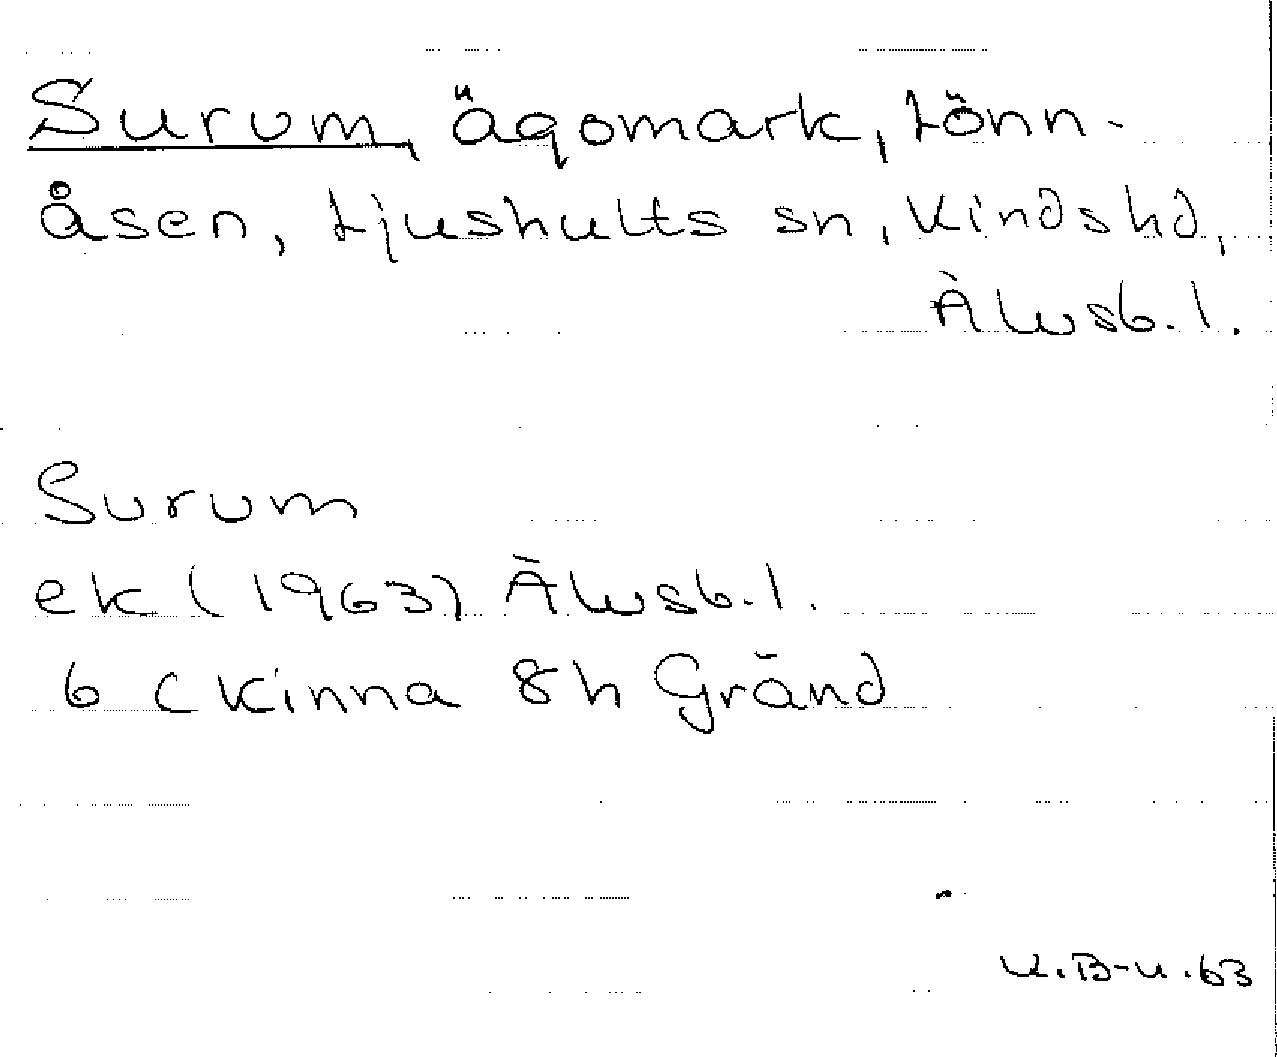 Surum, ägomark, Lönn-
åsen, Ljushults sn, Kinds hd,
Älvsb. l.
Surum
ek (1963) Älvsb. l.
6 C Kinna 8h Gränd
K.B-n. 63